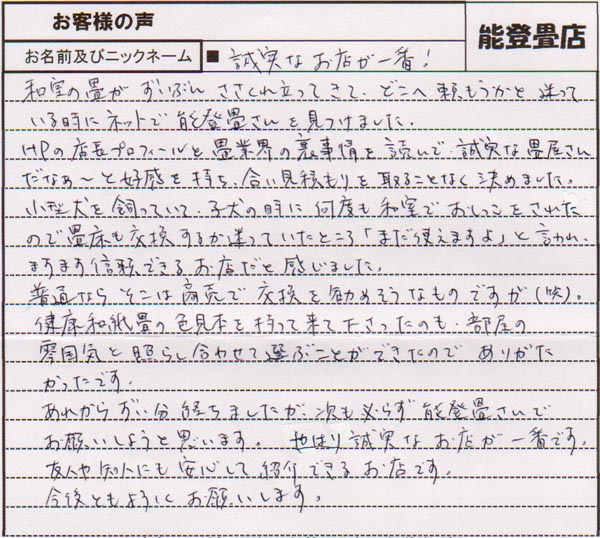 お客様の声
能登畳店
お名前及びニックネーム ■ 誠実なお店が一番!
和室の畳がずいぶんささくれ立ってきて、どこへ頼もうかと迷って
いる時にネットで能登畳さんを見つけました。
HPの店長プロフィールと畳業界の裏事情を読んで、誠実な畳屋さん
だなぁ〜と好感を持ち、合い見積もりを取ることなく決めました。
小型犬を飼っていて、子犬の時に何度も和室でおしっこをされた
ので畳床も交換するか迷っていたところ「まだ使えますよ」と言われ、
ますます信頼できるお店だと感じました。
普通ならそこは商売で交換を勧めそうなものですが(笑)。
健康和紙畳の色見本を持って来て下さったのも、部屋の
雰囲気と照らし合わせて選ぶことができたのでありがた
かったです。
あれからずい分経ちましたが、次も必らず能登畳さんで
お願いしようと思います。やはり誠実なお店が一番です。
友人や知人にも安心して紹介できるお店です。
今後ともよろしくお願いします。